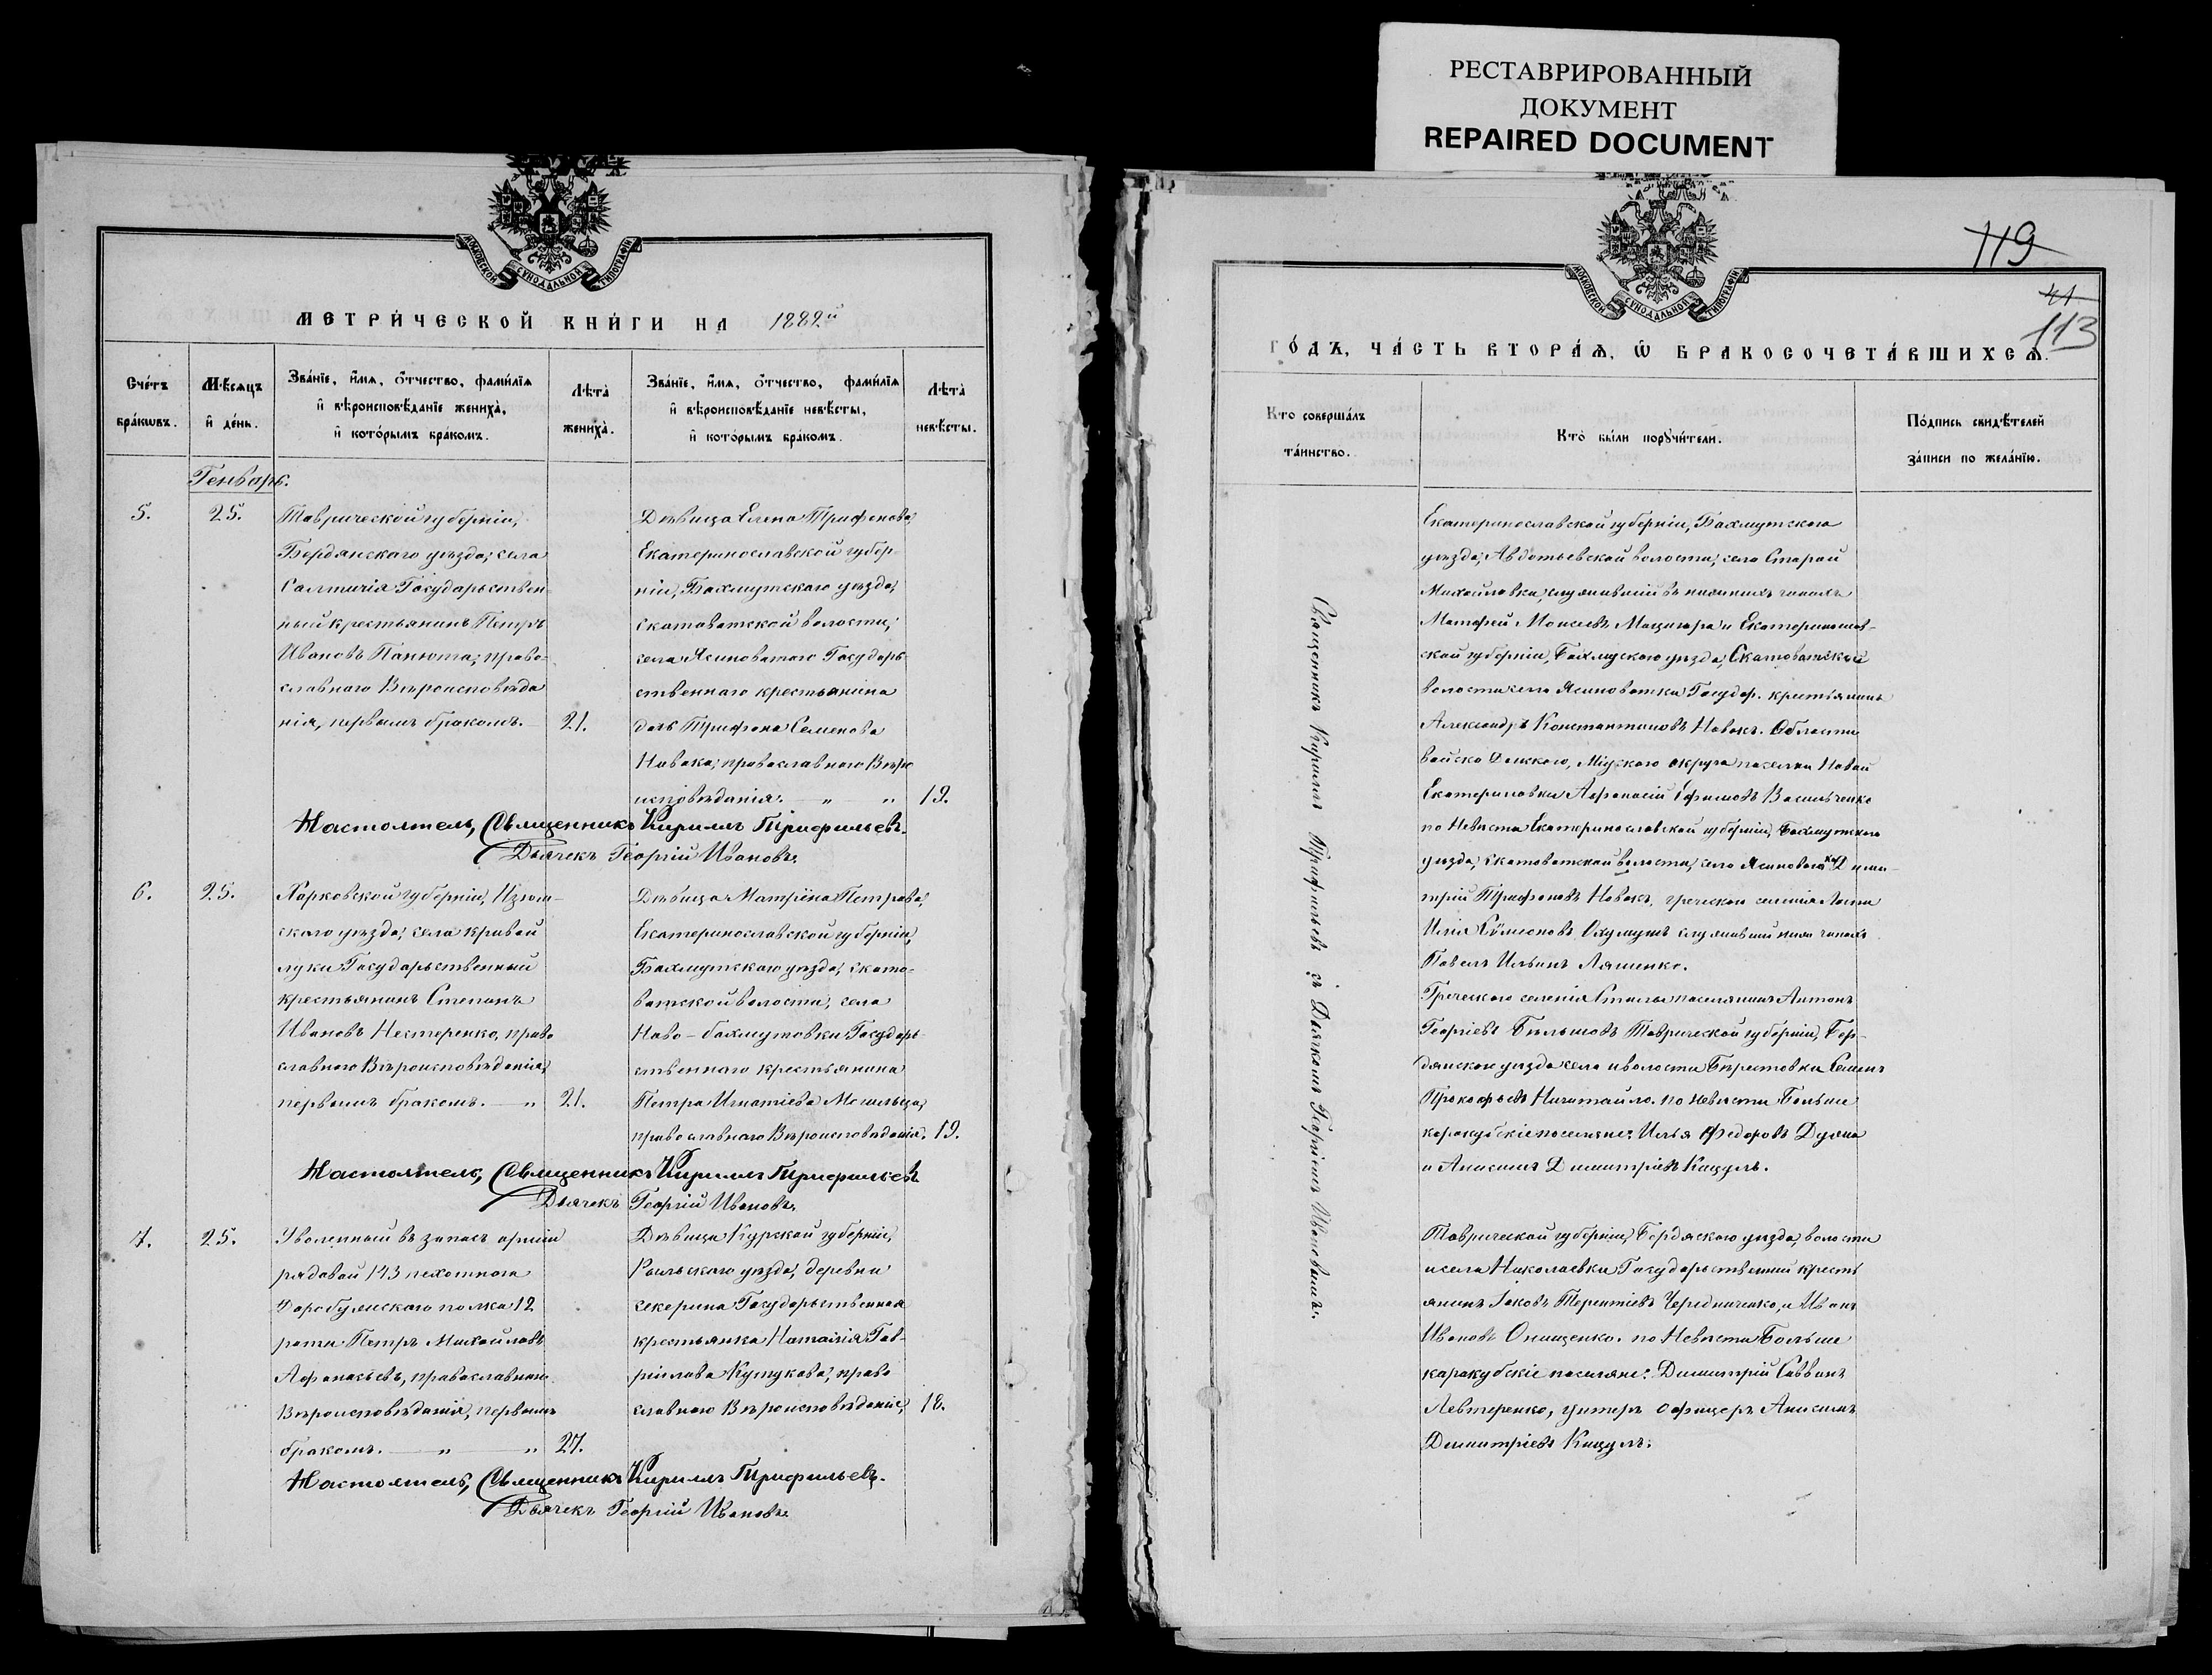 РЕСТАВРИРОВАННЫЙ
ДОКУМЕНТ
REPAIRED DOCUMENT
МОСКОВСКОЙ СѴНОДАЛЬНОЙ ТИПОГРАФІИ
МЕТРИ́ЧЕСКОЙ КНИ́ГИ НА 1882й
Сче́тъ бра́кѡвъ.
Мѣ́сѧцъ и҆ де́нь.
Зва́нїе, и҆́мѧ, ѻ҆́тчество, фами́лїѧ и҆ вѣроисповѣ́данїе жениха̀, и҆ кото́рымъ бра́комъ.
Лѣта̀ жениха̀.
Зва́нїе, и҆́мѧ, ѻ҆́тчество, фами́лїѧ и҆ вѣроисповѣ́данїе невѣ́сты, и҆ кото́рымъ бра́комъ.
Лѣта̀ невѣ́сты.
Генварь.
5.
25.
Таврической губерніи,
Бердянскаго уѣзда, села
Салтичія Государствен-
ный крестьянинъ Петръ
Ивановъ Панюта, право-
славнаго Вѣроисповѣда
нія, первымъ бракомъ.
21.
Дѣвица Елена Трифонова,
Екатеринославской губер-
ніи, Бахмутскаго уѣзда,
Скотоватской волости,
села Ясиноватаго Государ-
ственнаго крестьянина
дочь Трифона Семенова
Новака, православнаго Вѣро
исповѣданія. — „ „
19.
Настоятель, Священникъ Кириллъ Трифильевъ.
Дьячекъ Георгій Ивановъ.
6.
25.
Харковской губерніи, Изюм-
скаго уѣзда, села Кривой
луки Государственный
крестьянинъ Степанъ
Ивановъ Нестеренко, право
славнаго Вѣроисповѣданія,
первымъ бракомъ. — „
21.
Дѣвица Матрона Петрова,
Екатеринославской губерніи,
Бахмутскаго уѣзда, Ското-
ватской волости, села
Ново-бахмутовки Государ-
ственнаго крестьянина
Петра Игнатіева
православнаго Вѣроисповѣданія.
19.
Настоятель, Священникъ Кириллъ Трифильевъ
Дьячекъ Георгій Ивановъ.
7.
25.
Уволенный въ запасъ арміи
рядовой 143 пехотнаго
Доробужскаго полка 12
роты Петръ Михайловъ
Афонасьевъ, православнаго
Вѣроисповѣданія, первымъ
бракомъ. — „ — „
27.
Дѣвица Курской губерніи,
Рыльскаго уѣзда, деревни
Секерина Государственная
крестьянка Наталія Гав-
ріилова Кутукова, право
славнаго Вѣроисповѣданіе,
18.
Настоятель, Священникъ Кириллъ Трифильевъ.
Дьячекъ Георгій Ивановъ.
119
41
113
МОСКОВСКОЙ СѴНОДАЛЬНОЙ ТИПОГРАФІИ
ГО́ДЪ, ЧА́СТЬ ВТОРА́Ѧ, Ѡ҆ БРАКОСОЧЕТА́ВШИХСѦ.
Кто соверша́лъ та́инство.
Кто̀ бы́ли порꙋчи́тели.
По́дпись свидѣ́телей за́писи по жела́нїю.
Священникъ Кириллъ Трифильевъ съ Дьячкомъ Георгіемъ Ивановымъ.
Екатеринославской губерніи, Бахмутскаго
уѣзда, Авдотьевской волости, села Старой
Михайловки, служивый въ нижнихъ чинахъ
Матфей Моисеевъ и Екатеринослав-
ской губерніи, Бахмускаго уѣзда, Скотоватской
волости села Ясиноватки Государ. крестьянинъ
Александръ Константиновъ Новакъ. Области
войска Донскаго, Міускаго округа поселка Новой
Екатериновки Афонасій Ефимовъ Васильченко
по Невѣстѣ Екатеринославской губерніи, Бахмутскаго
уѣзда, Скотоватской волости, села Дими-
трій Трифоновъ Новакъ, греческой селенія
Илія служивый ниж. чинахъ
Павелъ Ильинъ Ляшенко.
Греческаго селенія Стылы поселянинъ Антонъ
Георгіевъ Таврической губерніи, Бер-
дянскаго уѣзда села и волости Берестовки Семенъ
Прокофьевъ Ничитайло. по Невѣсти Больше
каракубскіе поселяне: Илья Федоровъ
и Анисимъ Димитріевъ Кацулъ.
Таврической губерніи, Бердяскаго уѣзда, волости
и села Николаевки Государственный кресть
янинъ Іаковъ Терентіевъ Чередниченко, и Иванъ
Ивановъ Онищенко. по Невѣсти Больше
каракубскіе поселяне: Димитрій Саввинъ
Левтеренко, Унтеръ Офицеръ Анисимъ
Димитріевъ Кацулъ.